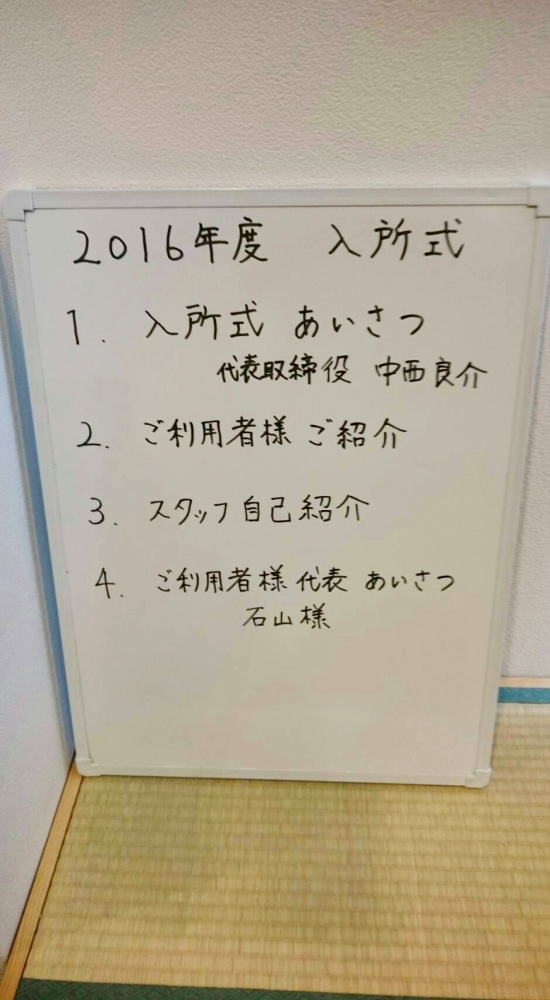 2016年度 入所式
1. 入所式 あいさつ
代表取締役 中西良介
2. ご利用者様 ご紹介
3. スタッフ自己紹介
4. ご利用者様代表 あいさつ
石山様